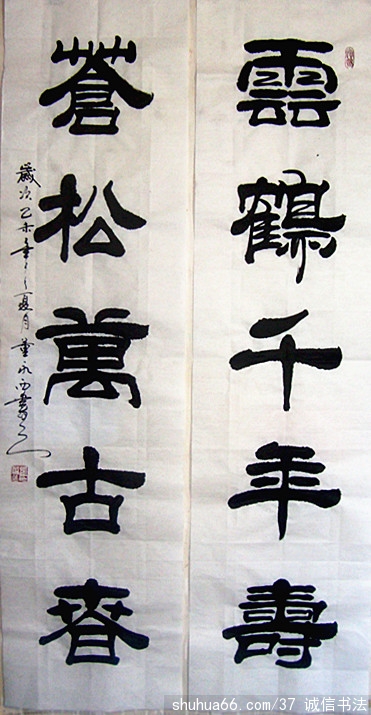 雲鶴千年壽
蒼松萬古春
歲次乙未年之夏月董永西書之
shuhua66.com/37 诚信书法